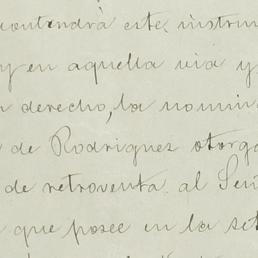 contendrá este instrum
y en aquella via y
derecho, la nomin
de Rodriguez otorga
de retroventa al Señ
que posee en la se